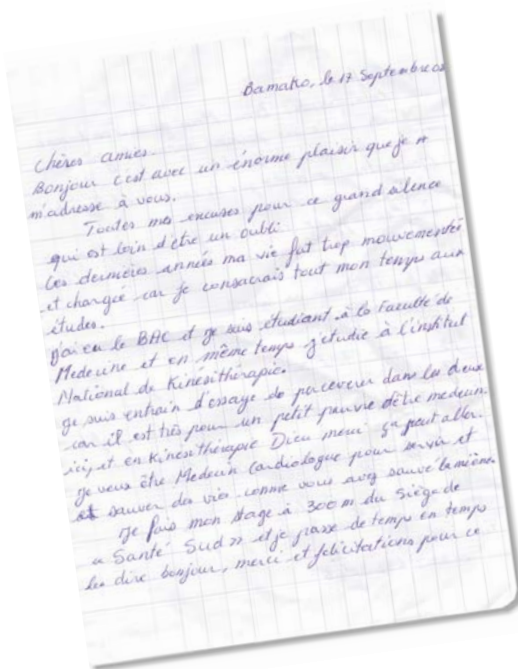 Bamako, le 17 Septembre 02
Chères amies.
Bonjour c'est avec un énorme plaisir que je
m'adresse à vous.
Toutes mes excuses pour ce grand silence
qui est loin d'être un oubli.
Ces dernières années ma vie fut trop mouvementée
et chargée car je consacrais tout mon temps aux
études.
J'ai eu le BAC et je suis étudiant à la Faculté de
Medecine et en même temps j'étudie à l'institut
National de Kinésithérapie.
je suis entrain d'essaye de percevoir dans les deux
car il est très pour un petit pauvre d'être medecin
ici, et en Kinésithérapie Dieu merci ça peut aller.
je veux être Medecin Cardiologue pour servir et
et sauver des vies comme vous avez sauvé la mienne.
Je fais mon stage à 300 m du siège de
« Santé Sud » et je passe de temps en temps
les dire bonjour, merci et felicitations pour ce